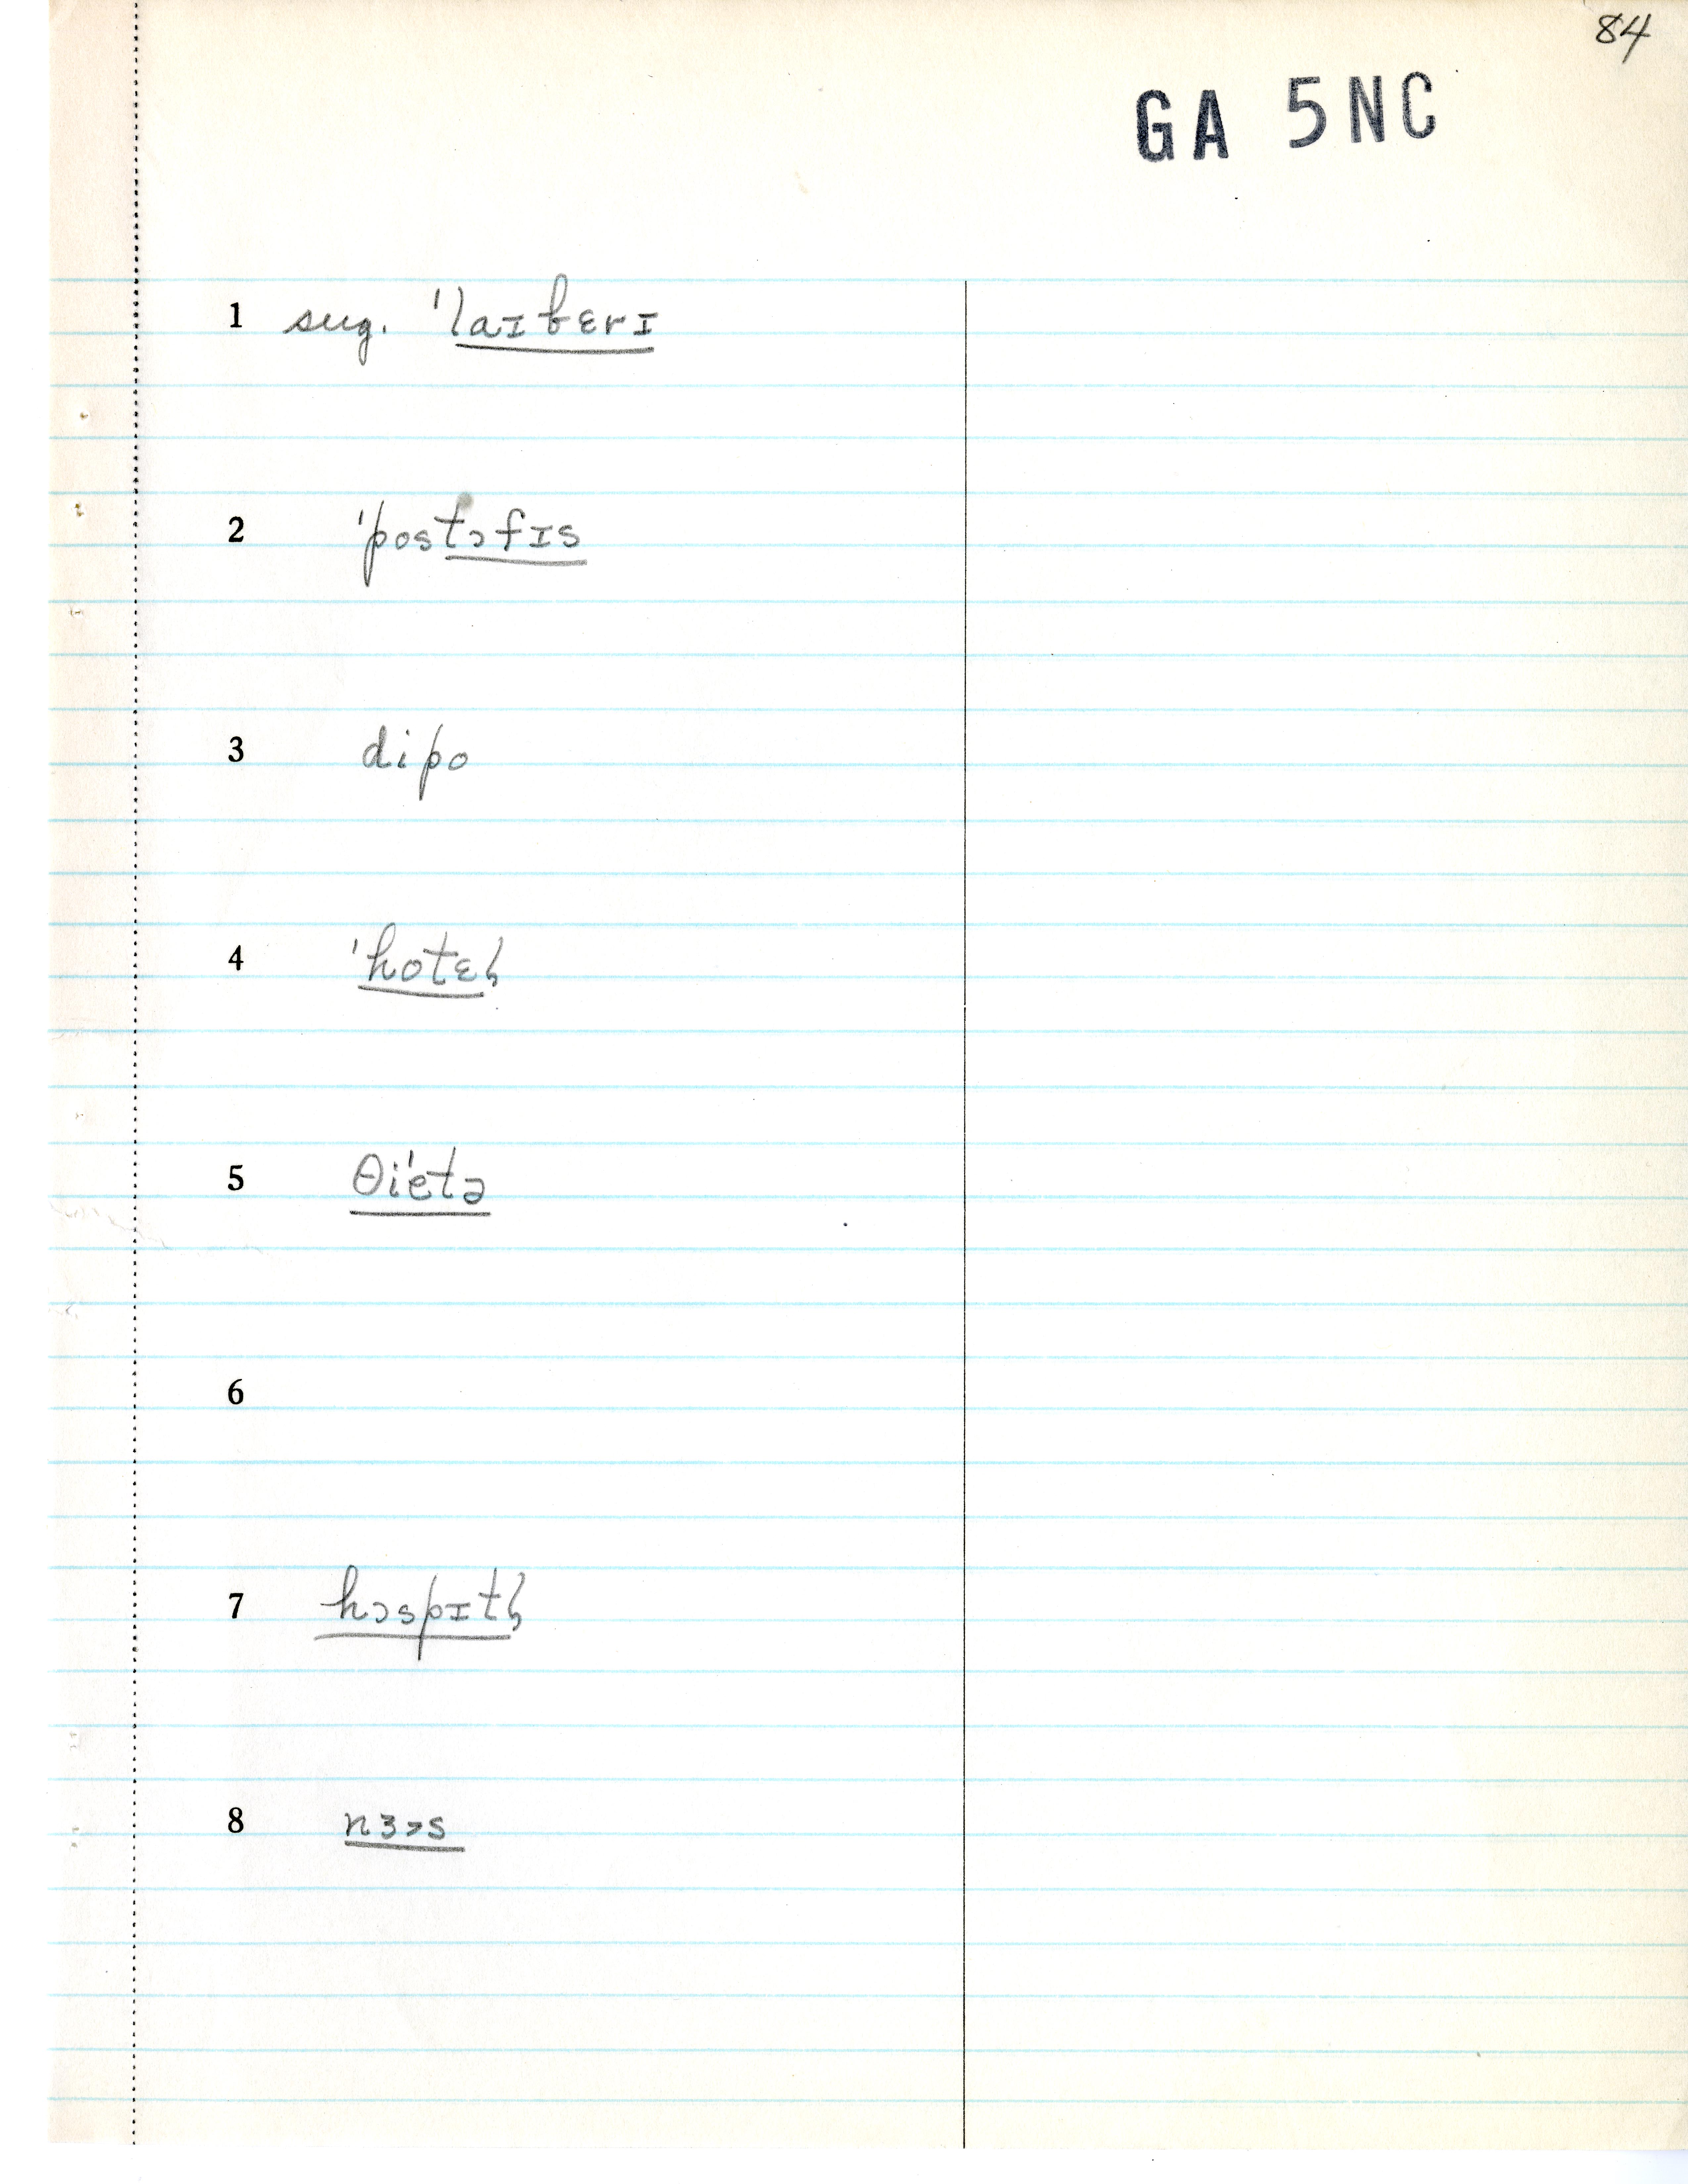 84
GA 5NC
1 sug. ˈlaɪbɛrɪ
2 ˈpostɔfɪs
3 dipo
4 ˈhotɛɫ
5 θiˈetə
6
7 hɔspɪtɫ
8 nɜɔs